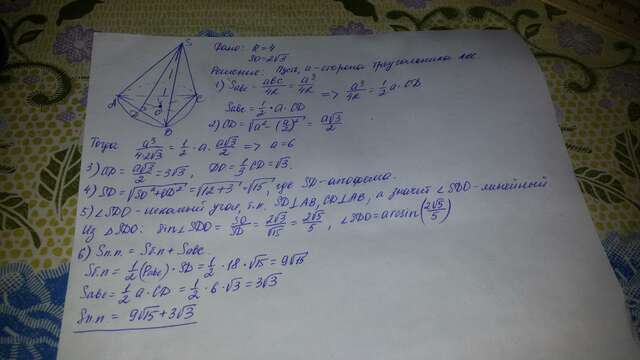 Дано: R=4
SO=2√3
Решение: Пусть, a-сторона треугольника ABC
1) Sавс = abc/4R = a³/4R => a³/4R = 1/2 a·CD
Sавс = 1/2 · a · CD
2) CD = √(a² - (a/2)²) = a√3/2
Тогда a³/4·2√3 = 1/2 · a · a√3/2 => a=6
3) CD = a√3/2 = 3√3, DO = 1/3 CD = √3.
4) SD = √(SO²+OD²) = √(12+3) = √15, где SD-апофема.
5) ∠SDO - искомый угол, т.к. SD⊥AB, CD⊥AB, а значит ∠SDO-линейный
Из △SDO: Sin∠SDO = SO/SD = 2√3/√15 = 2√5/5, ∠SDO = arcsin(2√5/5)
6) Sп.п. = Sб.п + Sавс
Sб.п = 1/2 (Pавс) · SD = 1/2 · 18 · √15 = 9√15
Sавс = 1/2 a · CD = 1/2 · 6 · √3 = 3√3
Sп.п = 9√15 + 3√3
S
A
C
D
O
B